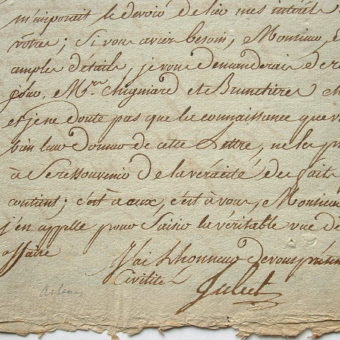 m'imposait le devoir de lier mes intérêts
vôtres; Si vous aviez besoin, Monsieur,
ample détail, je vous demanderais de
pour Mrs. Chigniard et Brunetières
et je ne doute pas que la connaissance que
bien leur donner de cette Lettre, ne les
à Se ressouvenir de la véracité du fait
contient; c'est à eux, c'est à vous, Monsieur
j'en appelle pour Saisir la véritable vue de
ffaire
J'ai L'honneur de vous
Civilité